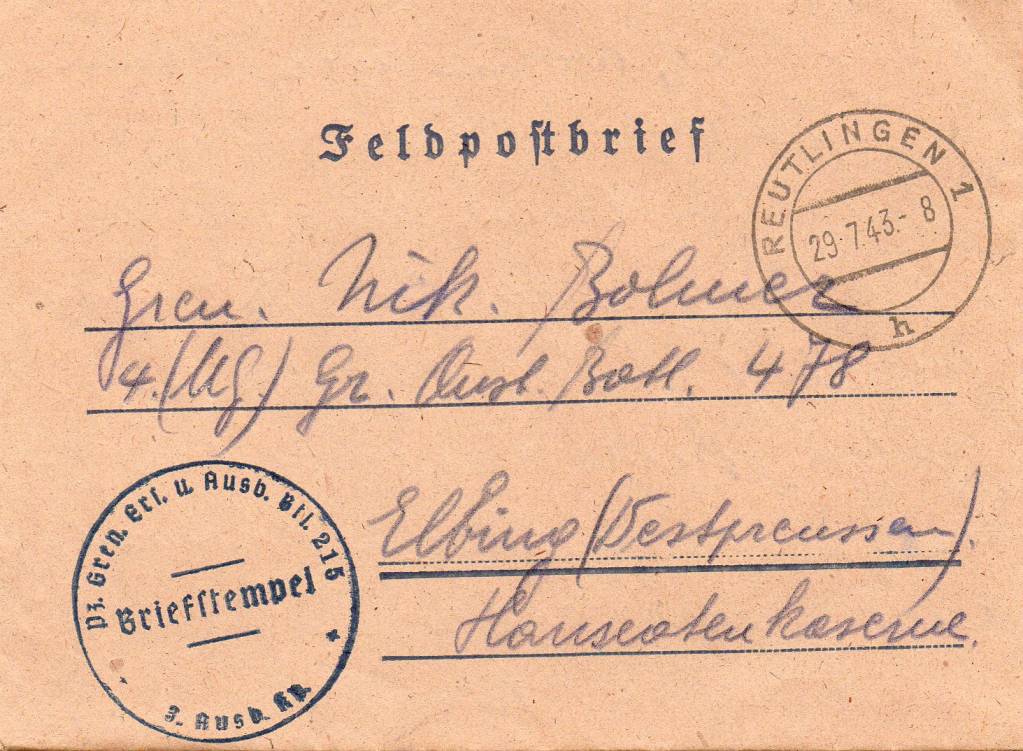 Feldpostbrief
REUTLINGEN 1
29.7.43.- 8
h
Gren. Nik. Bolmer
4. (Mg.) Gr. Ausb. Batl. 478
Elbing (Westpreussen).
Hanseatenkaserne.
Pz. Gren. Ers. u. Ausb. Btl. 215
Briefstempel
3. Ausb. Kp.